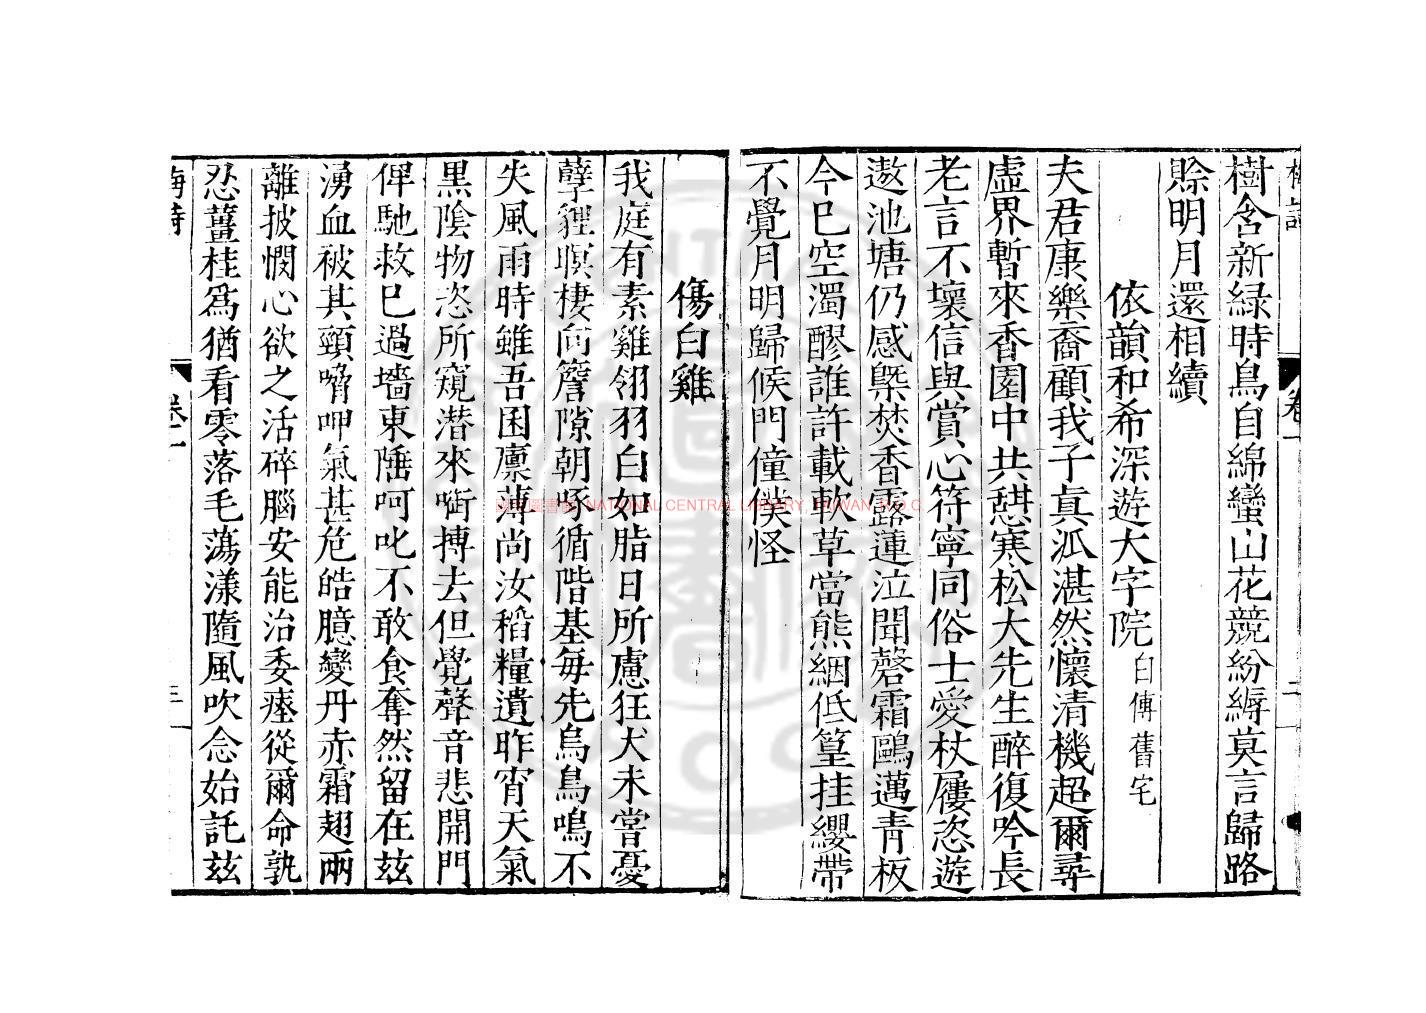 樹含新緑時鳥自綿蠻山花競紛縟莫言歸路
賒明月還相續
依韻和希深遊大字院白傅舊宅
夫君康樂裔顧我子真派湛然懷清機超爾尋
虛界暫來香園中共憩寒松大先生醉復吟長
老言不壞信與賞心符寧同俗士愛杖屨恣遊
遨池塘仍感槩焚香露蓮泣聞磬霜鷗邁青板
今已空濁醪誰許載軟草當熊絪低篁挂纓帶
不覺月明歸候門僮僕怪
傷白雞
我庭有素雞翎羽白如脂日所慮狂犬未嘗憂
孽貍暝棲向簷隙朝啄循階基每先烏鳥鳴不
失風雨時雖吾困廪薄尚汝稻糧遺昨宵天氣
黑陰物恣所窺潜來嚙搏去但覺聲音悲開門
俾馳救已過墻東陲呵叱不敢食奪然留在兹
湧血被其頸嗋呷氣甚危皓臆變丹赤霜翅兩
離披憫心欲之活碎腦安能治委瘞從爾命孰
忍薑桂爲猶看零落毛蕩漾隨風吹念始託兹
卷一
國家圖書館 NATIONAL CENTRAL LIBRARY, TAIWAN, R.O.C.